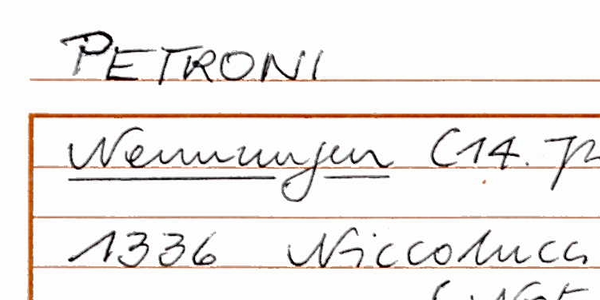 PETRONI
Nennungen (14.
1336 Niccolucci